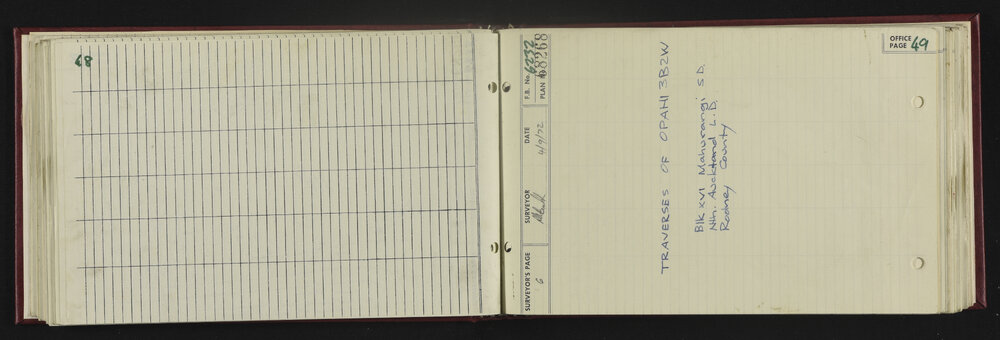 48
OFFICE
PAGE 49
F.B. No. 6232
PLAN 68268
DATE
4/9/72
SURVEYOR
SURVEYOR'S PAGE
G
TRAVERSES OF OPAHI 3B2W
Blk XVI Mahurangi S.D.
Nth. Auckland L.D.
Rodney County